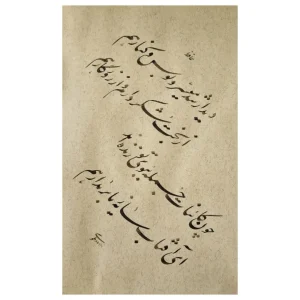 حافظ
دیدار شد میسر و بوس و کنار هم
از بخت شکر دارم و از روزگار هم
چون کائنات جمله ببوی تو زنده‌اند
ای آفتاب سایه ز ما برمدار هم